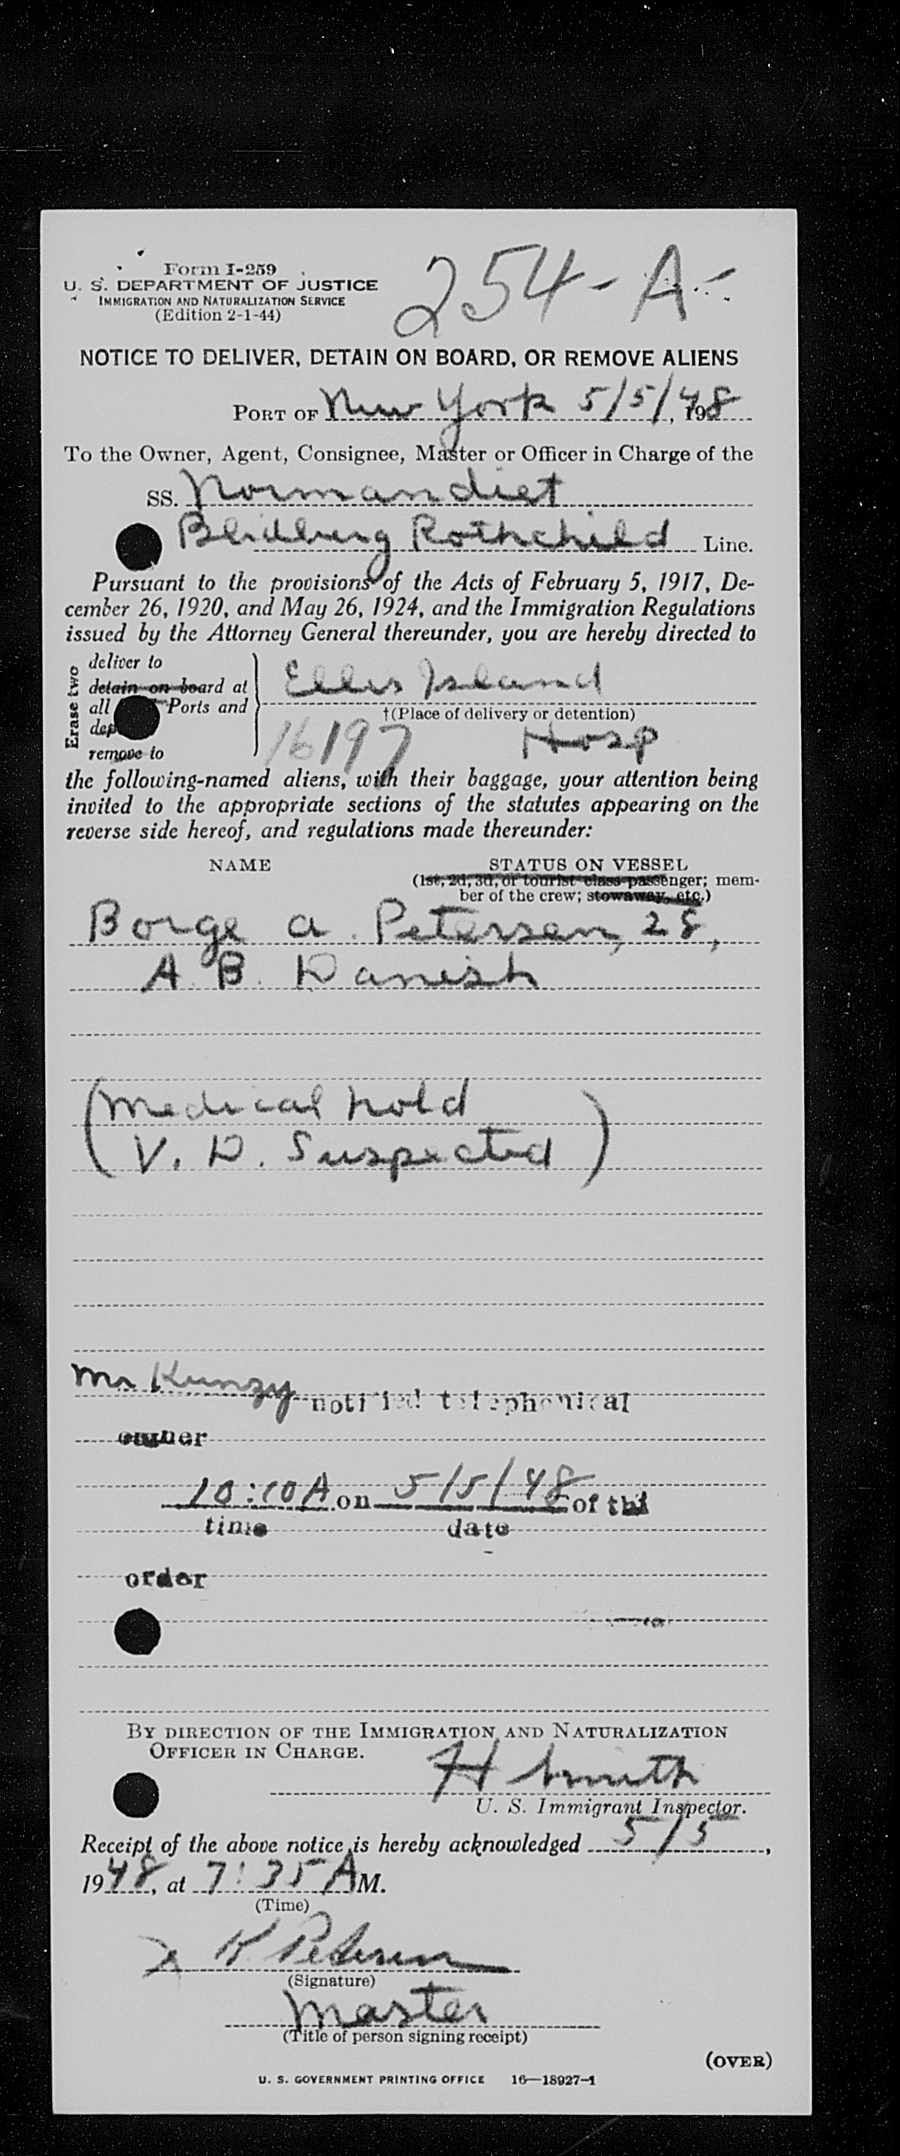 Form I-259
U. S. DEPARTMENT OF JUSTICE
IMMIGRATION AND NATURALIZATION SERVICE
(Edition 2-1-44)
254-A-
NOTICE TO DELIVER, DETAIN ON BOARD, OR REMOVE ALIENS
PORT OF New York 5/5/48, 198
To the Owner, Agent, Consignee, Master or Officer in Charge of the
SS. Normandiet
Blidberg Rothchild Line.
Pursuant to the provisions of the Acts of February 5, 1917, De-
cember 26, 1920, and May 26, 1924, and the Immigration Regulations
issued by the Attorney General thereunder, you are hereby directed to
Erase two
deliver to
detain on board at
all Ports and
remove to
Ellis Island
†(Place of delivery or detention)
16197 Hosp
the following-named aliens, with their baggage, your attention being
invited to the appropriate sections of the statutes appearing on the
reverse side hereof, and regulations made thereunder:
NAME STATUS ON VESSEL
(1st, 2d, 3d, or tourist class passenger; mem-
ber of the crew; stowaway, etc.)
Borge A. Petersen, 28,
A. B. Danish
(Medical hold
V. D. Suspected)
Mr Kunzy notified telephonical
owner
10:10A on 5/5/48 of thi
time date
order
BY DIRECTION OF THE IMMIGRATION AND NATURALIZATION
OFFICER IN CHARGE.
H Smith
U. S. Immigrant Inspector.
Receipt of the above notice is hereby acknowledged 5/5,
1948, at 7:35 AM.
(Time)
x K Petersen
(Signature)
Master
(Title of person signing receipt)
(OVER)
U. S. GOVERNMENT PRINTING OFFICE 16—18927-1